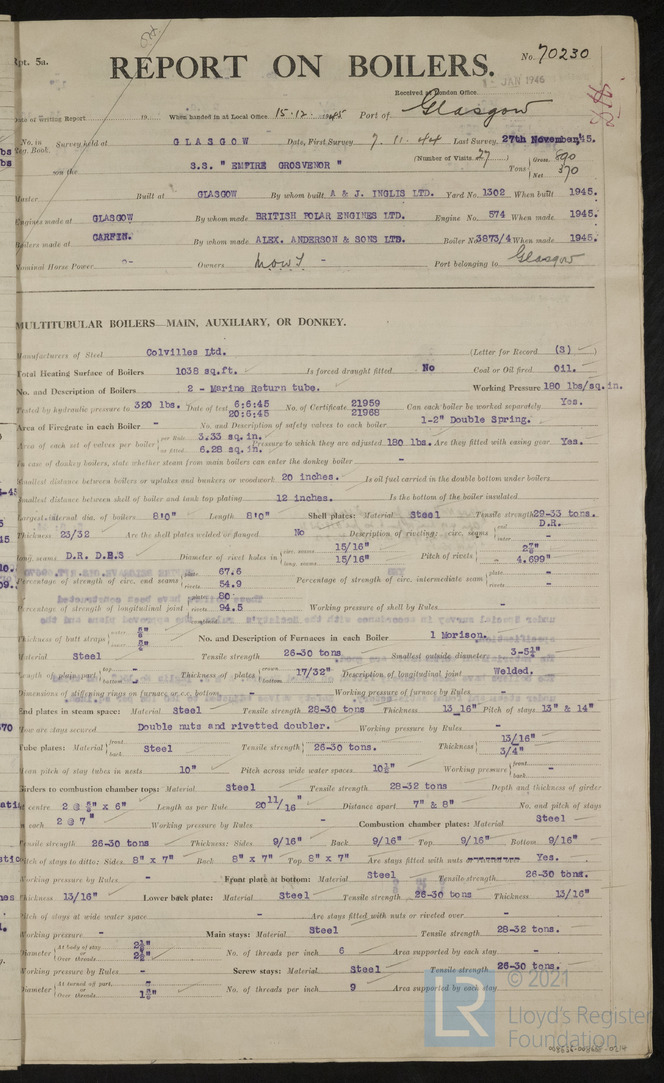 Rpt. 5a.
REPORT ON BOILERS.
No. 70230
Received at London Office
JAN 1946
Date of writing Report 19 When handed in at Local Office 15.12.1945 Port of Glasgow
No. in Reg. Book. Survey held at GLASGOW Date, First Survey 7.11.44 Last Survey 27th November, 45.
on the S.S. "EMPIRE GROSVENOR" (Number of Visits 27) Tons { Gross 890 Net 370
Master Built at GLASGOW By whom built A & J. INGLIS LTD. Yard No. 1302 When built 1945.
Engines made at GLASGOW By whom made BRITISH POLAR ENGINES LTD. Engine No. 574 When made 1945.
Boilers made at CARFIN. By whom made ALEX. ANDERSON & SONS LTD. Boiler No. 3873/4 When made 1945.
Nominal Horse Power - Owners M.O.W.T. - Port belonging to Glasgow
MULTITUBULAR BOILERS MAIN, AUXILIARY, OR DONKEY.
Manufacturers of Steel Colvilles Ltd. (Letter for Record (3) )
Total Heating Surface of Boilers 1038 sq.ft. Is forced draught fitted No Coal or Oil fired Oil.
No. and Description of Boilers 2 - Marine Return tube. Working Pressure 180 lbs/sq.in.
Tested by hydraulic pressure to 320 lbs. Date of test 6:6:45 20:6:45 No. of Certificate 21959 21968 Can each boiler be worked separately Yes.
Area of Firegrate in each Boiler - No. and Description of safety valves to each boiler 1-2" Double Spring.
Area of each set of valves per boiler { per Rule 3.33 sq.in. as fitted 6.28 sq.in. Pressure to which they are adjusted 180 lbs. Are they fitted with easing gear Yes.
In case of donkey boilers, state whether steam from main boilers can enter the donkey boiler -
Smallest distance between boilers or uptakes and bunkers or woodwork 20 inches. Is oil fuel carried in the double bottom under boilers
Smallest distance between shell of boiler and tank top plating 12 inches. Is the bottom of the boiler insulated
Largest internal dia. of boilers 8'0" Length 8'0" Shell plates: Material Steel Tensile strength 29-33 tons.
Thickness 23/32 Are the shell plates welded or flanged No Description of riveting: circ. seams { end D.R. inter -
long. seams D.R. D.B.S Diameter of rivet holes in { circ. seams 15/16" long. seams 15/16" Pitch of rivets { 4.699"
Percentage of strength of circ. end seams { plate 67.6 rivets 54.9 Percentage of strength of circ. intermediate seam { plate - rivets -
Percentage of strength of longitudinal joint { plate 80 rivets 94.5 Working pressure of shell by Rules -
Thickness of butt straps { outer inner No. and Description of Furnaces in each Boiler 1 Morison.
Material Steel Tensile strength 26-30 tons Smallest outside diameter
Length of plain part { top - bottom - Thickness of plates { crown bottom 17/32" Description of longitudinal joint Welded.
Dimensions of stiffening rings on furnace or c.c. bottom - Working pressure of furnace by Rules -
End plates in steam space: Material Steel Tensile strength 28-30 tons Thickness 13/16" Pitch of stays 13" & 14"
How are stays secured Double nuts and rivetted doubler. Working pressure by Rules -
Tube plates: Material { front back Steel Tensile strength { 26-30 tons. Thickness { 13/16" 3/4"
Mean pitch of stay tubes in nests 10" Pitch across wide water spaces 10½" Working pressure { front - back -
Girders to combustion chamber tops: Material Steel Tensile strength 28-32 tons Depth and thickness of girder
at centre 2 @ ⅝" x 6" Length as per Rule 20 11/16" Distance apart 7" & 8" No. and pitch of stays
in each 2 @ 7" Working pressure by Rules - Combustion chamber plates: Material Steel
Tensile strength 26-30 tons Thickness: Sides 9/16" Back 9/16" Top 9/16" Bottom 9/16"
Pitch of stays to ditto: Sides 8" x 7" Back 8" x 7" Top 8" x 7" Are stays fitted with nuts Yes.
Working pressure by Rules - Front plate at bottom: Material Steel Tensile strength 26-30 tons.
Thickness 13/16" Lower back plate: Material Steel Tensile strength 26-30 tons Thickness 13/16"
Pitch of stays at wide water space - Are stays fitted with nuts or riveted over -
Working pressure - Main stays: Material Steel Tensile strength 28-32 tons.
Diameter { At body of stay or Over threads No. of threads per inch 6 Area supported by each stay -
Working pressure by Rules - Screw stays: Material Steel Tensile strength 26-30 tons.
Diameter { At turned off part, - or Over threads No. of threads per inch 9 Area supported by each stay -
LR
© 2021
Lloyd's Register
Foundation